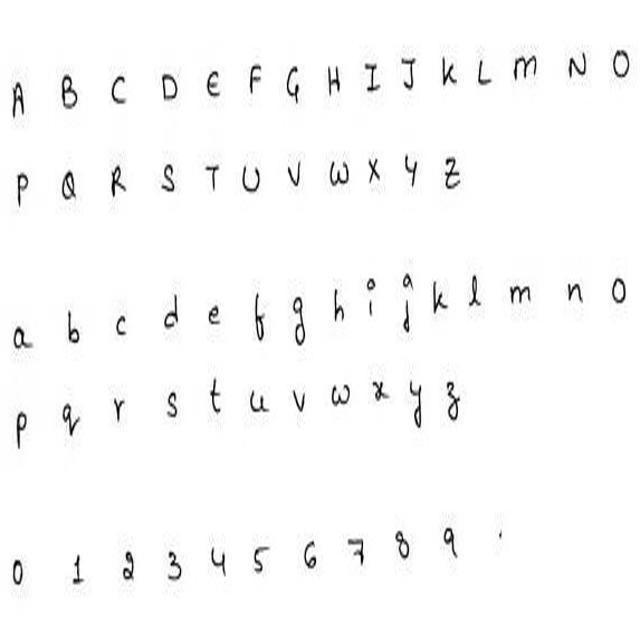 A B C D E F G H I J K L M N O
P Q R S T U V W X Y Z
a b c d e f g h i j k l m n o
p q r s t u v w x y z
0 1 2 3 4 5 6 7 8 9 .